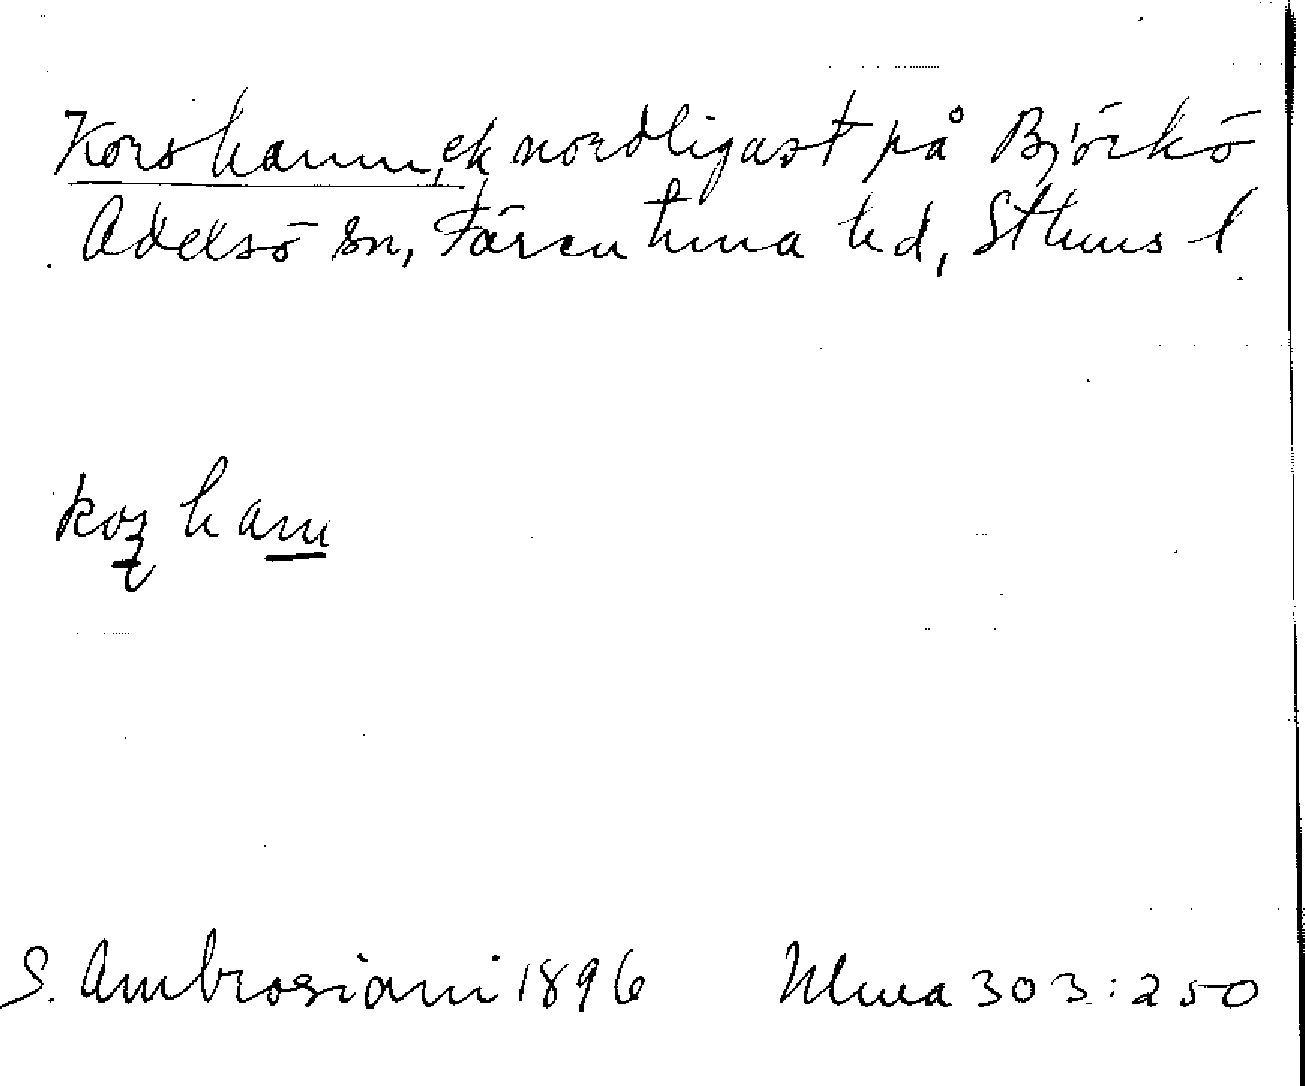 Korshamn, ek nordligast på Björkö
Adelsö sn, Färentuna hd, Sthms l
S. Ambrosiani 1896 Ulma 303:250